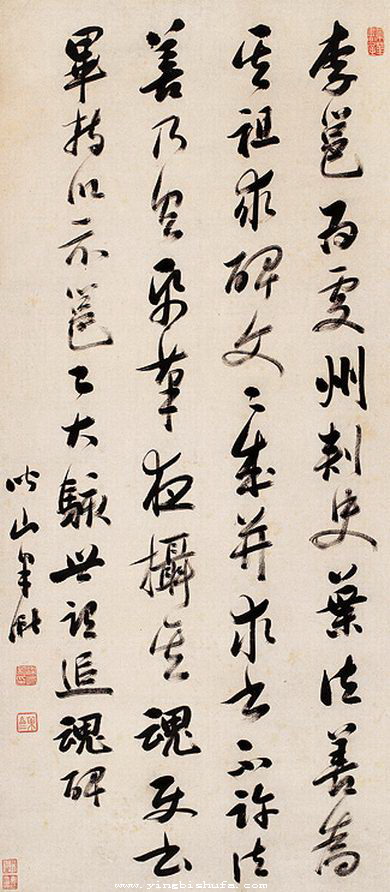 李邕為處州刺史葉法善為
其祖求碑文〻成并求書不許法
善乃具夜攝其魂使書
畢持以示邕〻大駭世謂追魂碑
山
www.yingbishufa.com